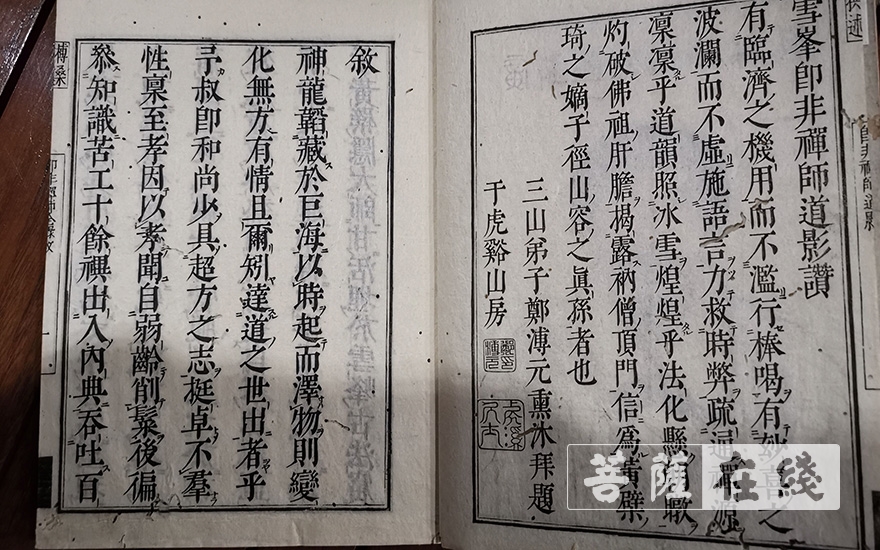 雪峯即非禪師道影讚
有臨濟之機用而不濫行棒喝有妙喜之
波瀾而不虛施語言力救時弊疏通源
凜凜乎道韻照冰雪煌煌乎法化懸日暾
灼破佛祖肝膽揭露衲僧頂門信爲黃檗
琦之嫡子徑山容之眞孫者也
三山弟子鄭溥元熏沐拜題
于虎谿山房
敘
神龍韜藏於巨海以時起而澤物則變
化無方有情且爾矧達道之世出者乎
予叔即和尚少具超方之志挺卓不羣
性稟至孝因以孝聞自弱齡削髮後徧
叅知識苦工十餘禩出入內典吞吐百
菩薩在线